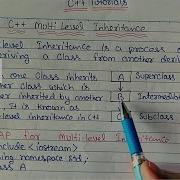 C++ Tutorials
C++ Multi Level Inheritance
level Inheritance is a process of
deriving a class from another
one class inherits
class which is
inherited by another
It is known as
level inheritance in C++
A Superclass
B
C Subclass
for Multi level Inheritance
<iostream>
namespace std;
A